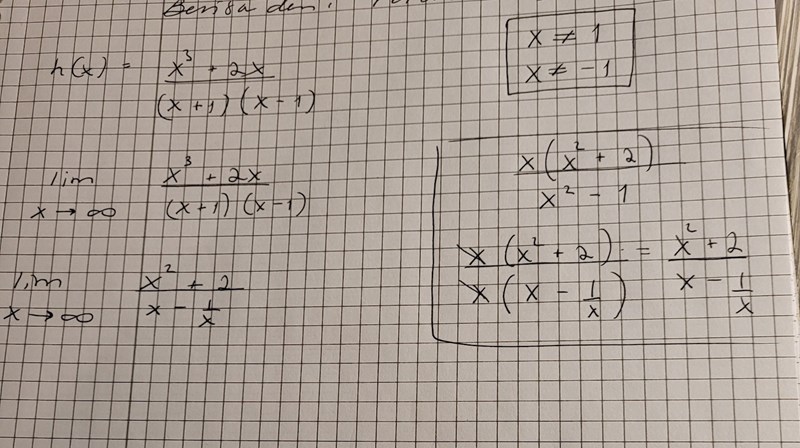 h(x) = (x³ + 2x) / ((x+1)(x-1))
x ≠ 1
x ≠ -1
lim x→∞ (x³ + 2x) / ((x+1)(x-1))
x(x² + 2) / (x² - 1)
x(x² + 2) / x(x - 1/x) = (x² + 2) / (x - 1/x)
lim x→∞ (x² + 2) / (x - 1/x)